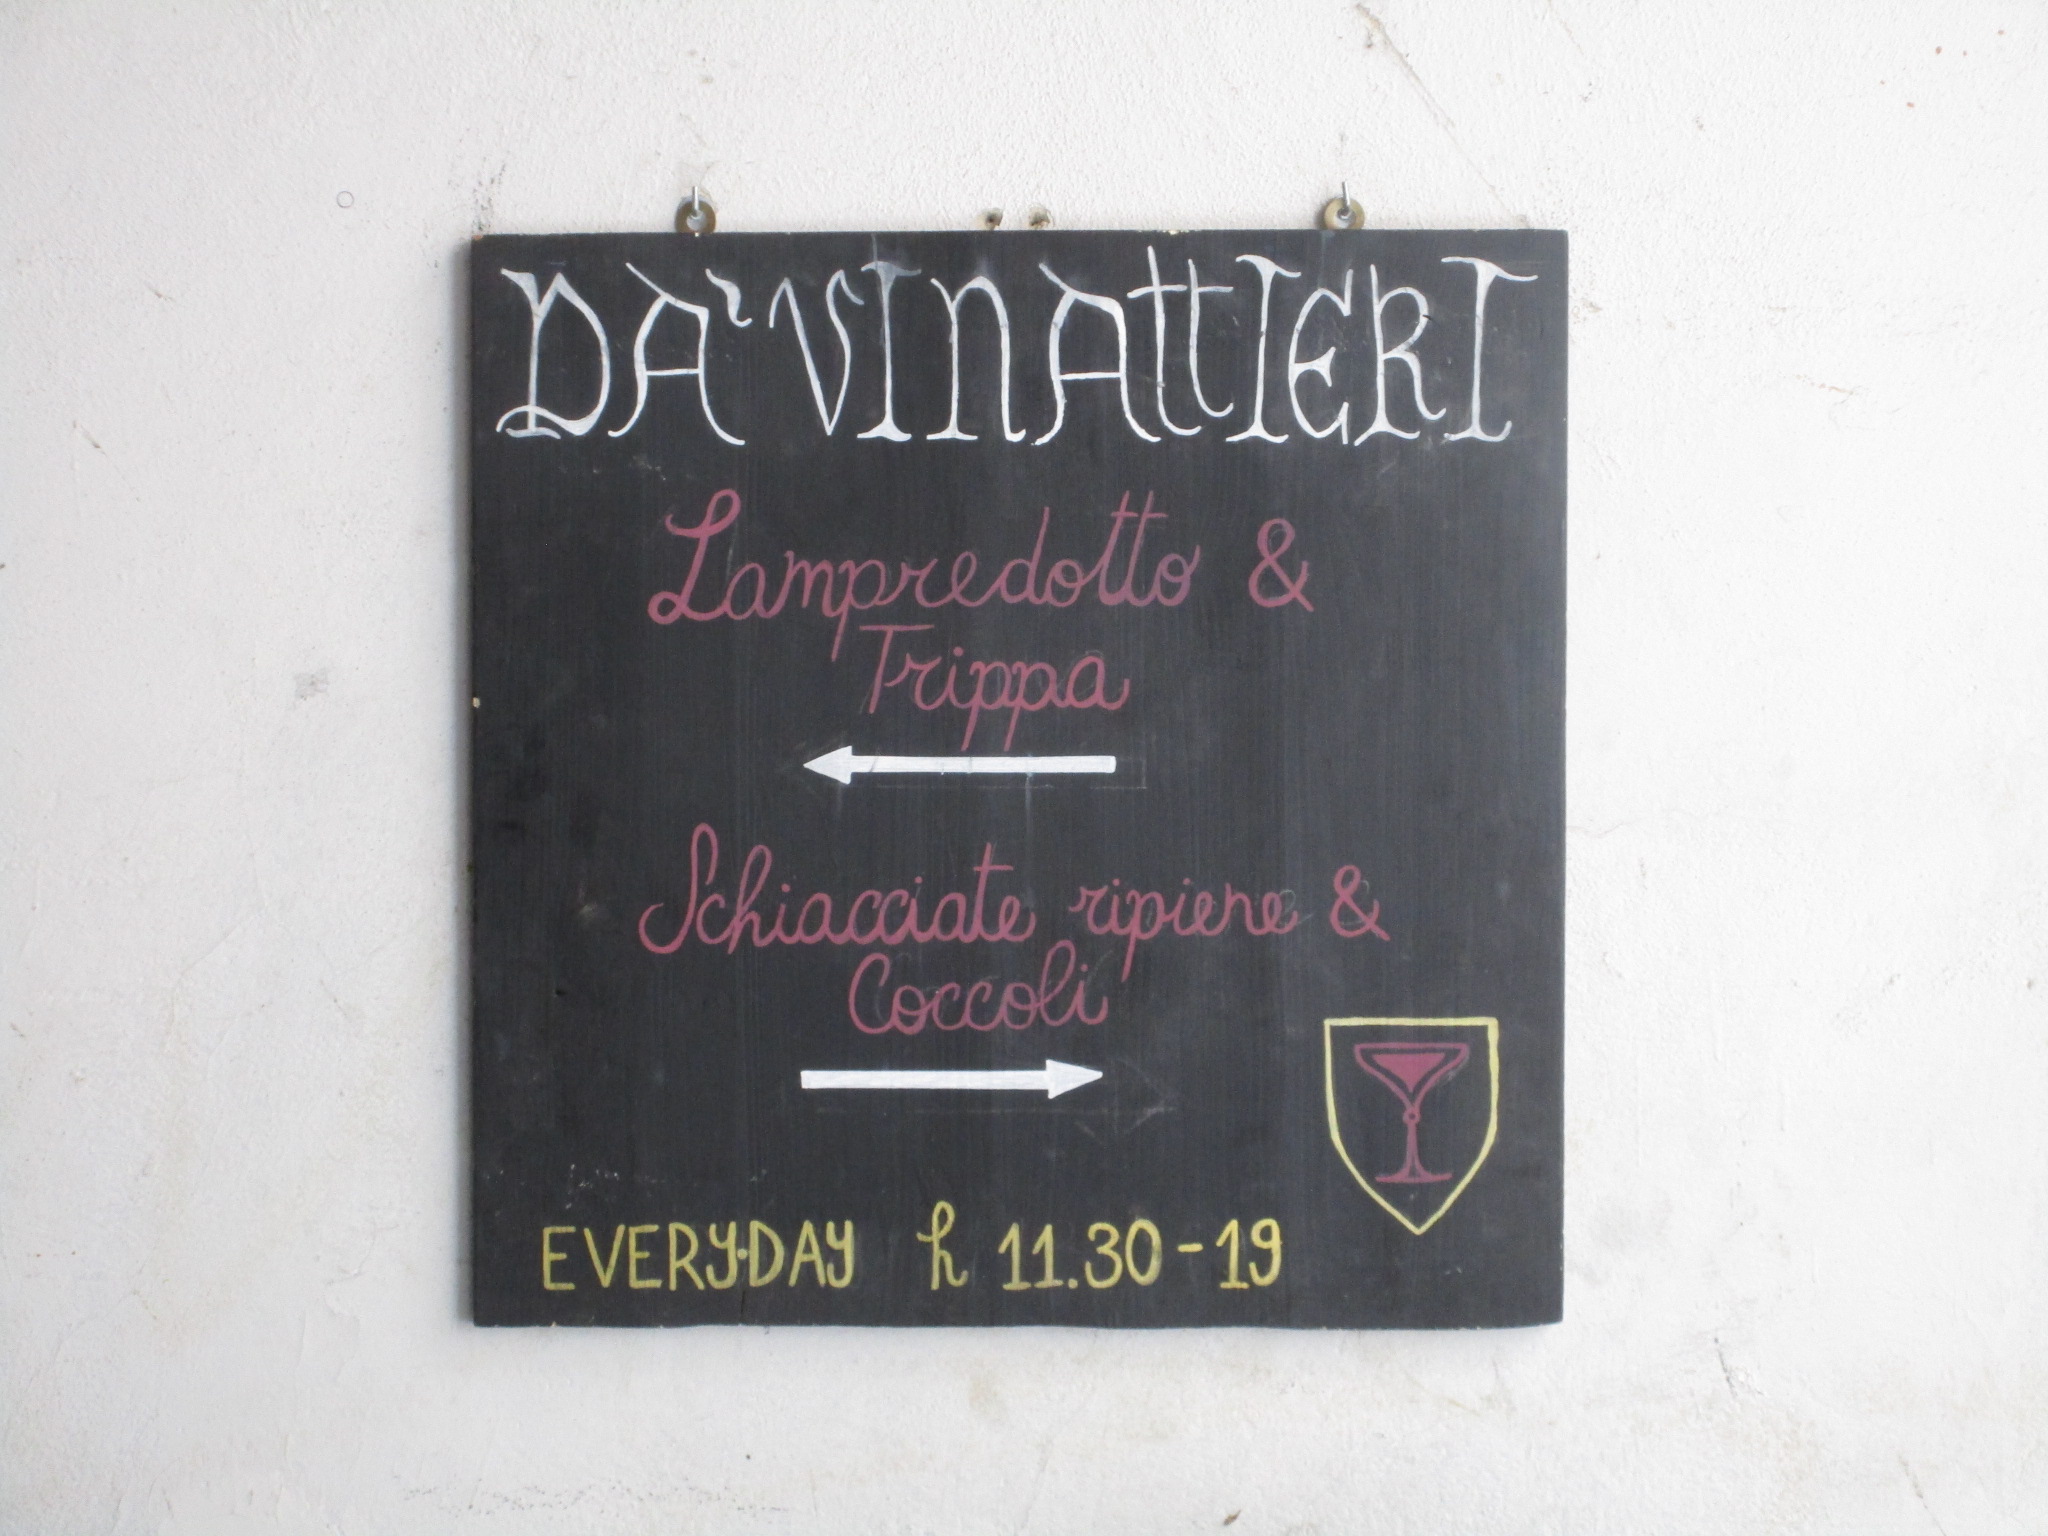 DA' VINATTIERI
Lampredotto &
Trippa
Schiacciate ripiene &
Coccoli
EVERY·DAY h 11.30-19